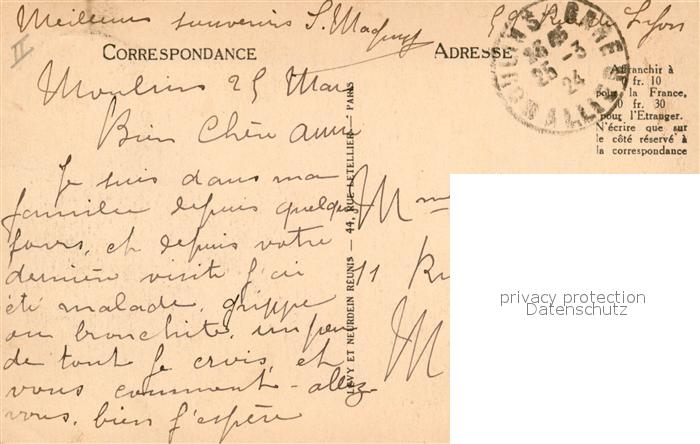 Meilleurs souvenirs S. Magnny
59 Rue de Lyon
CORRESPONDANCE
ADRESSE
MOULINS-S-ALLIER
25-3
24
Affranchir à
0 fr. 10
pour la France,
0 fr. 30
pour l'Etranger.
N'écrire que sur
le côté réservé à
la correspondance
Moulins 25 Mars
Bien Chère amie
Je suis dans ma
famille depuis quelques
jours, et depuis votre
dernière visite j'ai
été malade, grippe
ou bronchite, un peu
de tout je crois, et
vous comment-allez
vous, bien j'espère
LEVY ET NEURDEIN RÉUNIS — 44, RUE LETELLIER — PARIS
Mme
11 Ru
M
privacy protection
Datenschutz